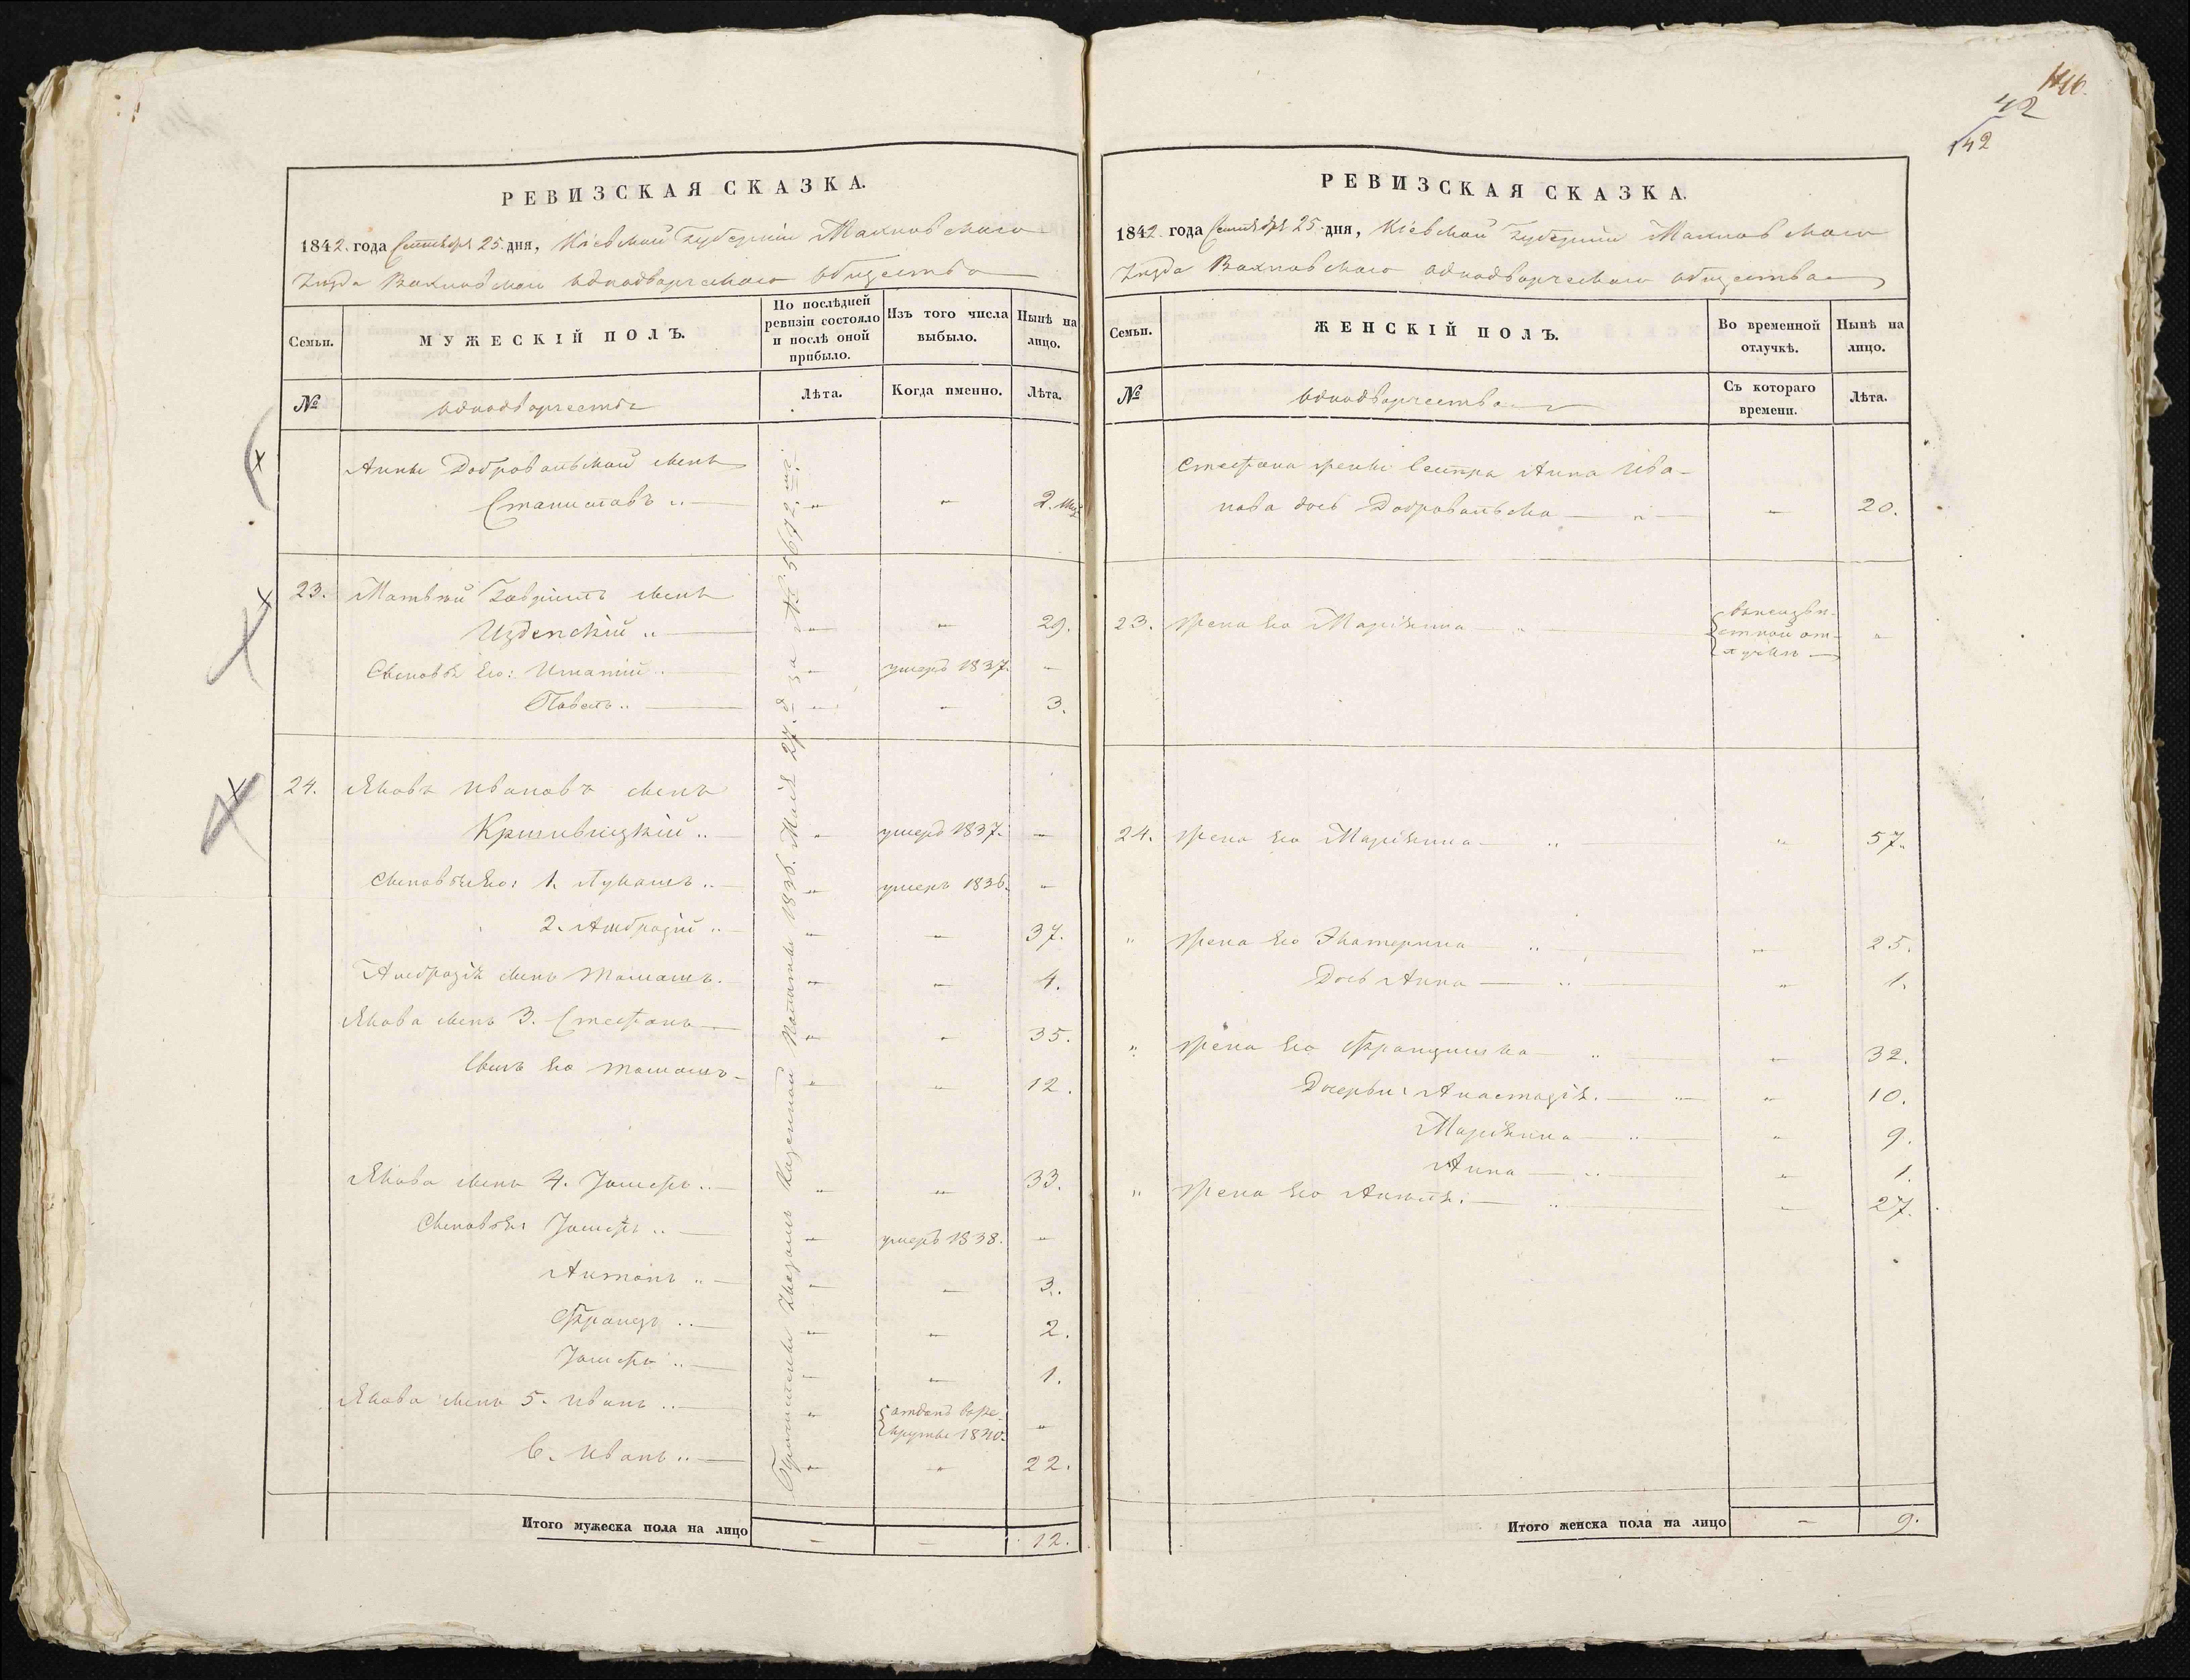 146.
42
142
РЕВИЗСКАЯ СКАЗКА.
1842. года Сентября 25. дня, Кіевской Губерніи Махновскаго
Уѣзда Вахновскаго однодворческаго общества
Семьи.
МУЖЕСКІЙ ПОЛЪ.
По послѣдней
ревизіи состояло
и послѣ оной
прибыло.
Изъ того числа
выбыло.
Нынѣ на
лицо.
№
однодворчества
Лѣта.
Когда именно.
Лѣта.
Анны Добровольской сынъ
Станиславъ „ „ „ 2. мѣ
23. Матвѣй Гавріилъ сынъ
Изденскій „ „ „ 29.
Сыновья его: Игнатій „ „ умеръ 1837. „
Павелъ „ „ „ 3.
24. Яковъ Ивановъ сынъ
Кришвицкій „ „ умеръ 1837. „
Сыновья его: 1. Лукашъ „ „ умеръ 1836. „
2. Амброзій „ „ „ 37.
Амброзія сынъ Томашъ. „ „ 4.
Якова сынъ 3. Стефанъ „ „ 35.
Сынъ его Томашъ „ „ 12.
Якова сынъ 4. Іосифъ „ „ „ 33.
Сыновья: Іосифъ „ „ умеръ 1838. „
Антонъ „ „ „ 3.
Францъ „ „ „ 2.
Іосифъ „ „ „ 1.
Якова сынъ 5. Иванъ „ „ отданъ въ ре-
круты 1840. „
6. Иванъ „ „ „ 22.
Казенной Палаты 1836. Мая 27. д за № 5672.
Итого мужеска пола на лицо – – 12.
РЕВИЗСКАЯ СКАЗКА.
1842 года Сентября 25. дня, Кіевской Губерніи Махновскаго
Уѣзда Вахновскаго однодворческаго общества
Семьи.
ЖЕНСКІЙ ПОЛЪ.
Во временной
отлучкѣ.
Нынѣ на
лицо.
№
однодворчества
Съ котораго
времени.
Лѣта.
Стефана жены сестра Анна Ива-
нова дочь Добровольска „ „ 20.
23. Жена его Маріянна „ въ неизвѣ-
стной от-
лучкѣ „
24. Жена его Маріянна „ „ 57.
„ Жена его Екатерина „ „ 25.
Дочь Анна „ „ 1.
„ Жена его Францишка „ „ 32.
Дочери: Анастазія. „ „ 10.
Маріянна „ „ 9.
Анна „ „ 1.
„ Жена его „ „ 27.
Итого женска пола на лицо – 9.